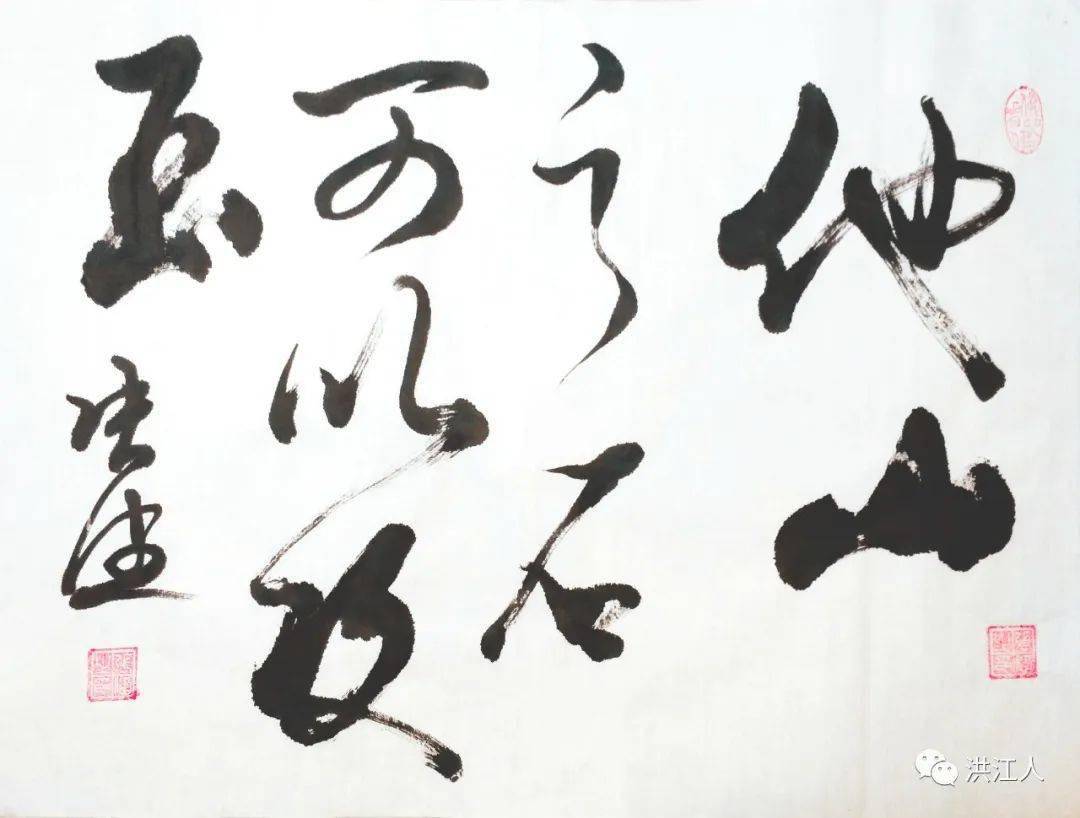 他山
之石
可以攻
玉
张
洪江人